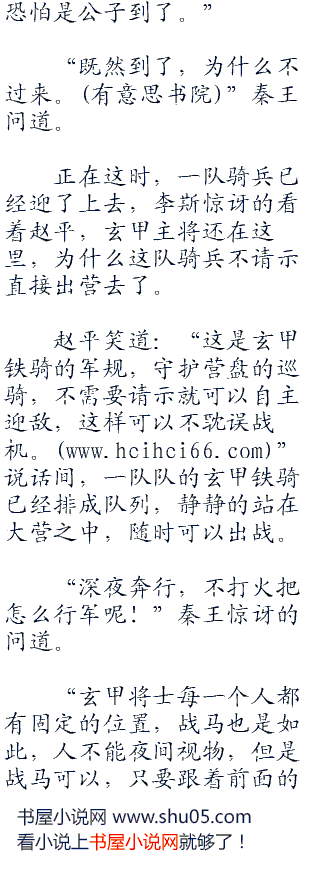 恐怕是公子到了。”
“既然到了，为什么不
过来。(有意思书院)”秦王
问道。
正在这时，一队骑兵已
经迎了上去，李斯惊讶的看
着赵平，玄甲主将还在这
里，为什么这队骑兵不请示
直接出营去了。
赵平笑道：“这是玄甲
铁骑的军规，守护营盘的巡
骑，不需要请示就可以自主
迎敌，这样可以不耽误战
机。(www.hcihci66.com)”
说话间，一队队的玄甲铁骑
已经排成队列，静静的站在
大营之中，随时可以出战。
“深夜奔行，不打火把
怎么行军呢！”秦王惊讶的
问道。
“玄甲将士每一个人都
有固定的位置，战马也是如
此，人不能夜间视物，但是
战马可以，只要跟着前面的
书屋小说网 www.shu05.com
看小说上书屋小说网就够了！